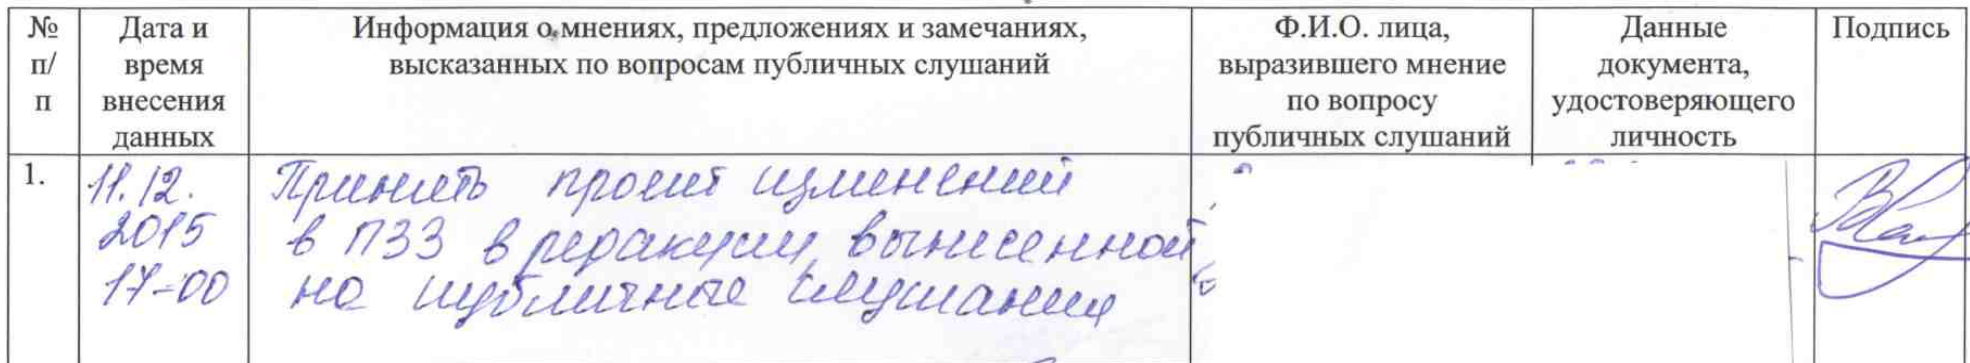 № п/п
Дата и время внесения данных
Информация о мнениях, предложениях и замечаниях,
высказанных по вопросам публичных слушаний
Ф.И.О. лица,
выразившего мнение
по вопросу
публичных слушаний
Данные
документа,
удостоверяющего
личность
Подпись
1.
11.12.
2015
17-00
Принять проект изменений
в ПЗЗ в редакции, вынесенной
на публичные слушания